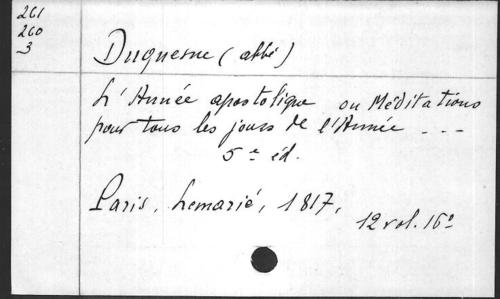 261
260
3
Duquesne (abbé)
L'Année apostolique ou Méditations
pour tous les jours de l'Année ---
5e éd.
Paris, Lemarié, 1817,
12 vol. 16°